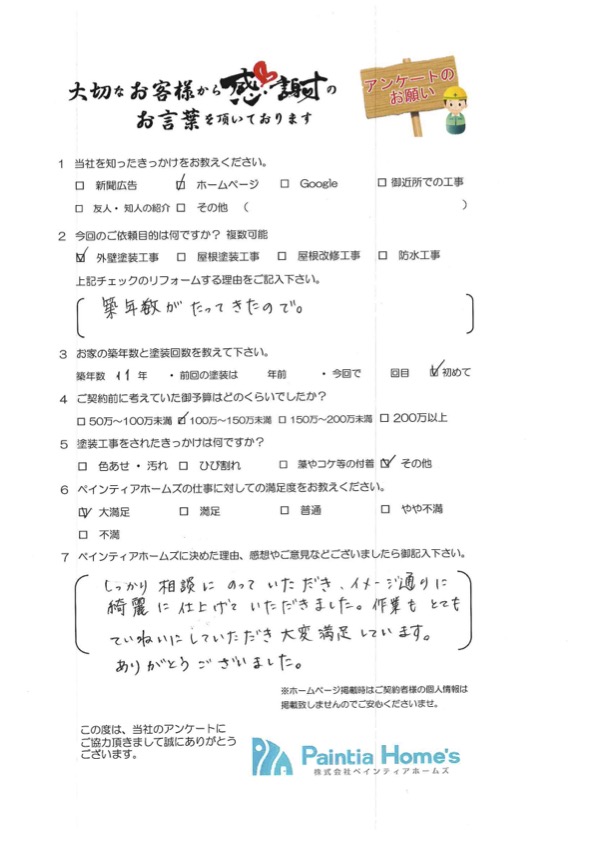 大切なお客様から感謝の
お言葉を頂いております
アンケートの
お願い
1 当社を知ったきっかけをお教えください。
□ 新聞広告 ☑ ホームページ □ Google □ 御近所での工事
□ 友人・知人の紹介 □ その他 ( )
2 今回のご依頼目的は何ですか? 複数可能
☑ 外壁塗装工事 □ 屋根塗装工事 □ 屋根改修工事 □ 防水工事
上記チェックのリフォームする理由をご記入下さい。
築年数がたってきたので。
3 お家の築年数と塗装回数を教えて下さい。
築年数 11年 ・前回の塗装は 年前 ・今回で 回目 ☑ 初めて
4 ご契約前に考えていた御予算はどのくらいでしたか?
□ 50万〜100万未満 ☑ 100万〜150万未満 □ 150万〜200万未満 □ 200万以上
5 塗装工事をされたきっかけは何ですか?
□ 色あせ・汚れ □ ひび割れ □ 藻やコケ等の付着 ☑ その他
6 ペインティアホームズの仕事に対しての満足度をお教えください。
☑ 大満足 □ 満足 □ 普通 □ やや不満
□ 不満
7 ペインティアホームズに決めた理由、感想やご意見などございましたら御記入下さい。
しっかり相談にのっていただき、イメージ通りに
綺麗に仕上げていただきました。作業もとても
ていねいにしていただき大変満足しています。
ありがとうございました。
※ホームページ掲載時はご契約者様の個人情報は
掲載致しませんのでご安心くださいませ。
この度は、当社のアンケートに
ご協力頂きまして誠にありがとう
ございます。
Paintia Home's
株式会社ペインティアホームズ